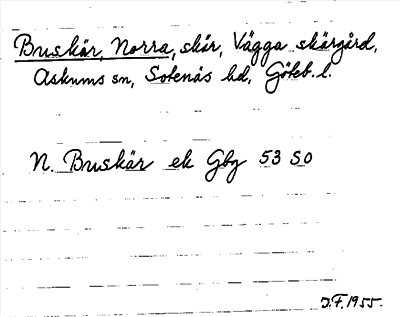 Buskär, Norra, skär, Vägga skärgård,
Askums sn, Sotenäs hd, Göteb. l.
N. Buskär ek Gbg 53 SO
J.F. 1955.